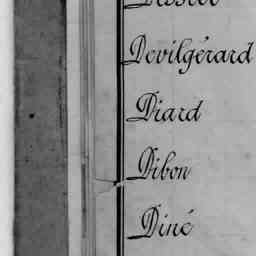 Devilgérard
Diard
Dibon
Diné